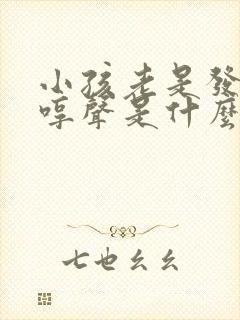 小孩老是發
哼聲是什麼
七也幺幺